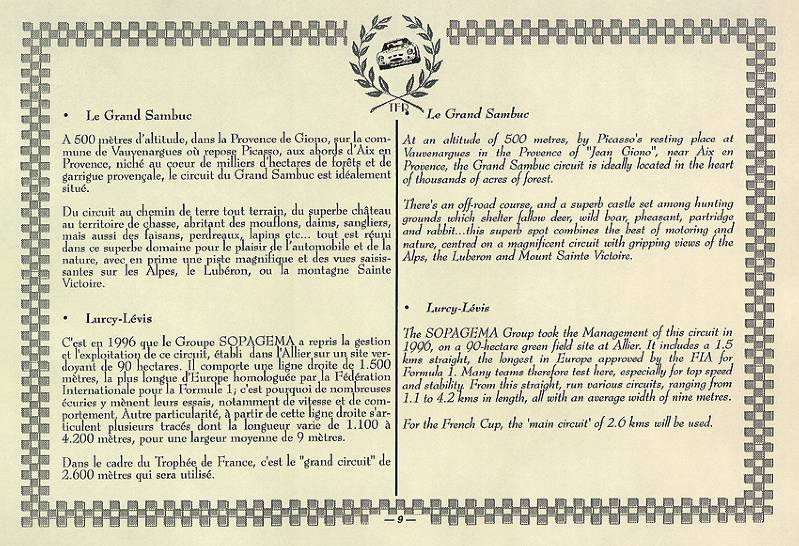 TFR
• Le Grand Sambuc
A 500 mètres d'altitude, dans la Provence de Giono, sur la com-
mune de Vauvenargues où repose Picasso, aux abords d'Aix en
Provence, niché au coeur de milliers d'hectares de forêts et de
garrigue provençale, le circuit du Grand Sambuc est idéalement
situé.
Du circuit au chemin de terre tout terrain, du superbe château
au territoire de chasse, abritant des mouflons, daims, sangliers,
mais aussi des faisans, perdreaux, lapins etc... tout est réuni
dans ce superbe domaine pour le plaisir de l'automobile et de la
nature, avec en prime une piste magnifique et des vues saisis-
santes sur les Alpes, le Lubéron, ou la montagne Sainte
Victoire.
• Lurcy-Lévis
C'est en 1996 que le Groupe SOPAGEMA a repris la gestion
et l'exploitation de ce circuit, établi dans l'Allier sur un site ver-
doyant de 90 hectares. Il comporte une ligne droite de 1.500
mètres, la plus longue d'Europe homologuée par la Fédération
Internationale pour la Formule 1; c'est pourquoi de nombreuses
écuries y mènent leurs essais, notamment de vitesse et de com-
portement, Autre particularité, à partir de cette ligne droite s'ar-
ticulent plusieurs tracés dont la longueur varie de 1.100 à
4.200 mètres, pour une largeur moyenne de 9 mètres.
Dans le cadre du Trophée de France, c'est le "grand circuit" de
2.600 mètres qui sera utilisé.
• Le Grand Sambuc
At an altitude of 500 metres, by Picasso's resting place at
Vauvenargues in the Provence of "Jean Giono", near Aix en
Provence, the Grand Sambuc circuit is ideally located in the heart
of thousands of acres of forest.
There's an off-road course, and a superb castle set among hunting
grounds which shelter fallow deer, wild boar, pheasant, partridge
and rabbit...this superb spot combines the best of motoring and
nature, centred on a magnificent circuit with gripping views of the
Alps, the Luberon and Mount Sainte Victoire.
• Lurcy-Lévis
The SOPAGEMA Group took the Management of this circuit in
1996, on a 90-hectare green field site at Allier. It includes a 1.5
kms straight, the longest in Europe approved by the FIA for
Formula 1. Many teams therefore test here, especially for top speed
and stability. From this straight, run various circuits, ranging from
1.1 to 4.2 kms in length, all with an average width of nine metres.
For the French Cup, the 'main circuit' of 2.6 kms will be used.
– 9 –